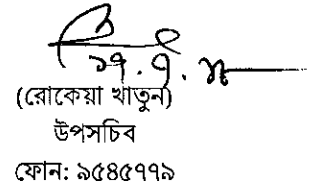 (রোকেয়া খাতুন)
উপসচিব
ফোন: ৯৫৪৫৭৭৯